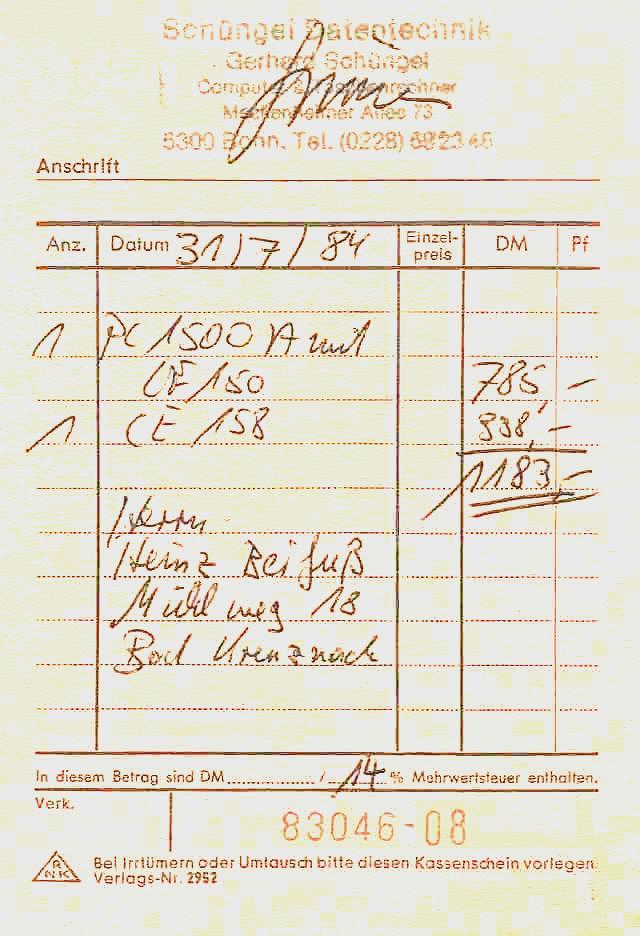 Schüngel Datentechnik
Gerhard Schüngel
Computer & Taschenrechner
Meckenheimer Allee 73
5300 Bonn. Tel. (0228)
Anschrift
Anz. Datum 31/7/84 Einzel-preis DM Pf
1 PC 1500 A mit
CE 150 785,-
1 CE 158 398,-
1183,-
Herrn
Heinz Beifuß
Mühlweg 18
Bad Kreuznach
In diesem Betrag sind DM / 14 % Mehrwertsteuer enthalten.
Verk.
83046-08
RNK
Bei Irrtümern oder Umtausch bitte diesen Kassenschein vorlegen.
Verlags-Nr. 2952